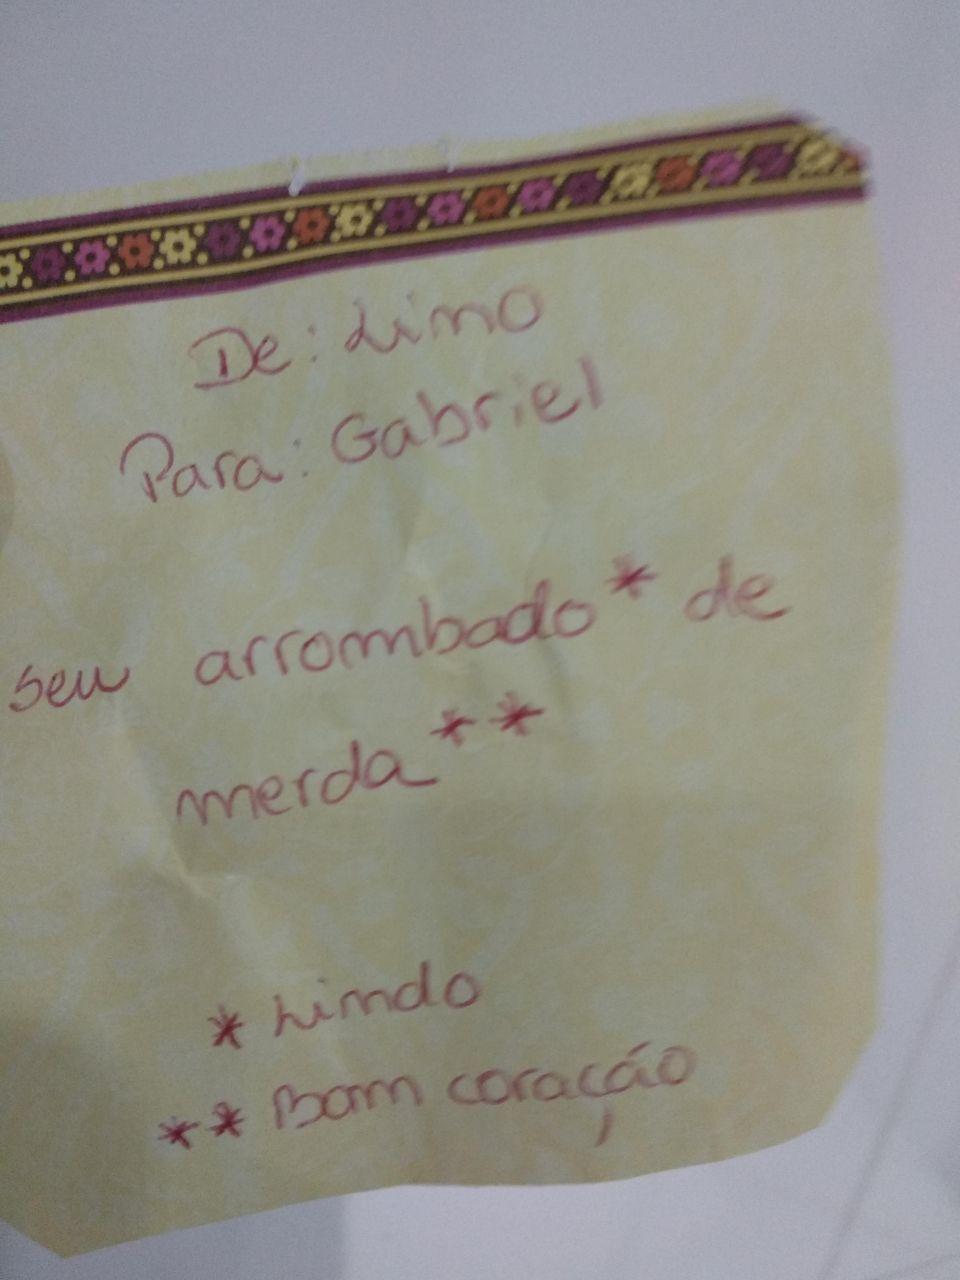 De: Lino
Para: Gabriel
seu arrombado* de
merda**
* Lindo
** Bom coração